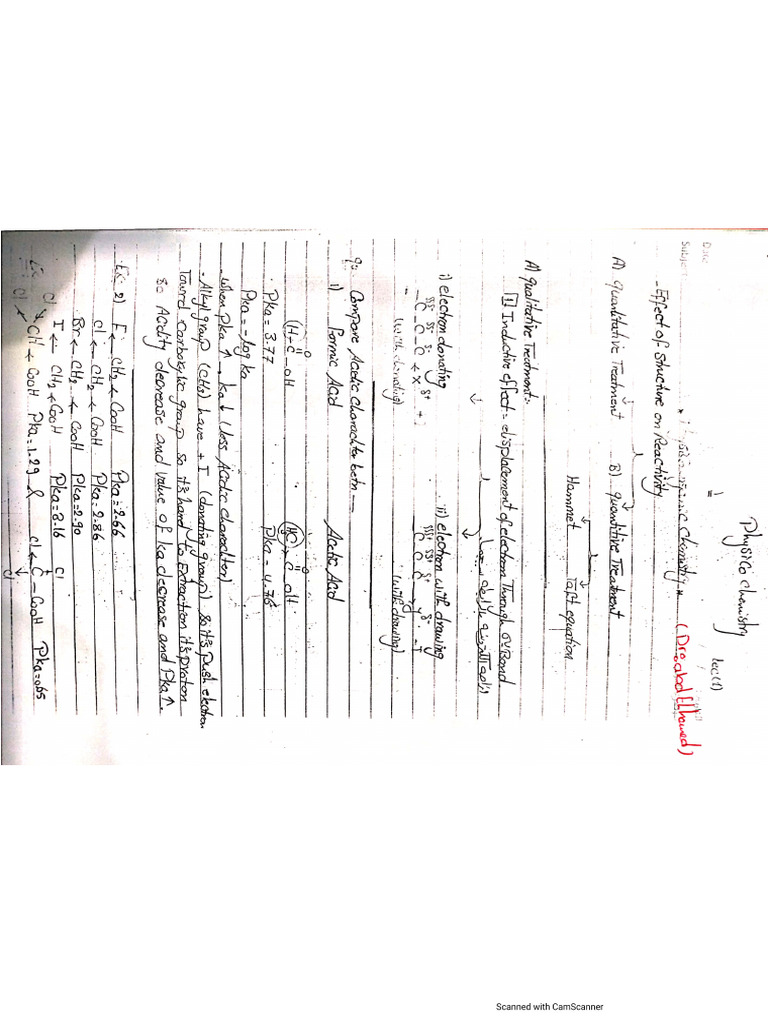 Physico chemistry lec(1)
1
physico organic chemistry (Dr. abd Elhamed)
Date:
Subject
- Effect of structure on Reactivity
A) quantitative Treatment B) quantitive Treatment
Hammet Taft equation
A) qualitative Treatment:
1 Inductive effect: displacement of electron Through σ Bond
i) electron donating ii) electron with drawing
-C-C-C←X + I
-C-C-C→Y - I
(with donating) (with drawing)
q: Compare Acidic charachter betn
1) Formic Acid Acetic Acid
O O
(H-C-OH H3C→C-OH
Pka = 3.77 Pka = 4.76
Pka = -log ka
.when Pka ↑ ka ↓ (less Acidic charachter)
. Alkyl group (CH3) have + I (donating group) so it's push electron
Toward carboxylic group so it's hard to Extraction it's proton
so Acidity decrease and value of ka decrease and Pka ↑.
Ex: 2) F ← CH2 ← CooH Pka = 2.66
Cl ← CH2 ← CooH Pka = 2.86
Br ← CH2 ← CooH Pka = 2.90
I ← CH2 ← CooH Pka = 3.16
Cl Cl
Ex: CH ← CooH Pka = 1.29 & Cl ← C - CooH Pka = 0.65
Cl Cl
Scanned with CamScanner